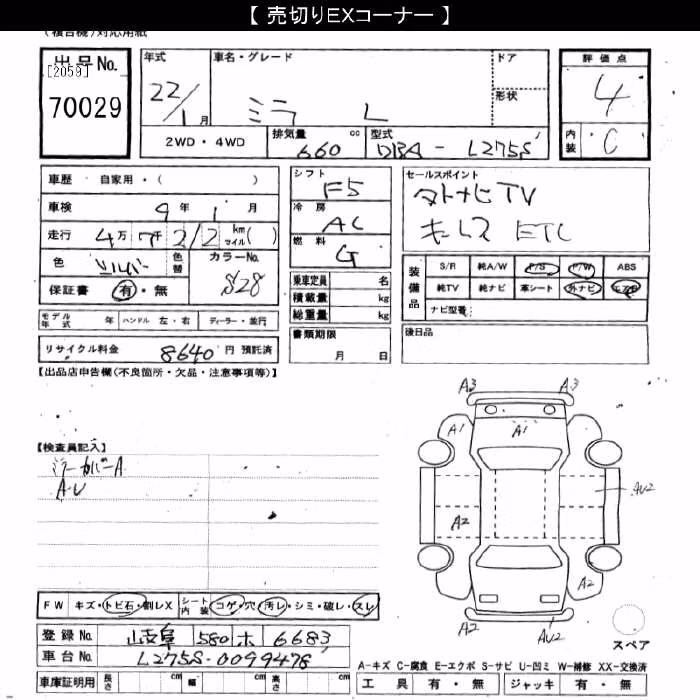 【 売切りEXコーナー 】
(複合機)対応用紙
出品No.
[2059]
70029
年式
22/1月
車名・グレード
ミラ L
ドア
形状
評価点
4
内装
C
2WD・4WD
排気量 cc
660
型式
DBA - L275S
車歴 自家用・( )
車検 9年 1月
走行 4万 7千 212 km マイル( )
色 シルバー
色替
カラーNo.
S28
保証書 有・無
シフト
F5
冷房
AC
燃料
G
乗車定員 名
積載量 kg
総重量 kg
セールスポイント
ナビTV
キーレス ETC
装備品
S/R 純A/W P/S P/W ABS
純TV 純ナビ 革シート 外ナビ エアB
ナビ型番:
モデル年式 年 ハンドル 左・右 ディーラー・並行
書類期限
月 日
後日品
リサイクル料金 8640 円 預託済
【出品店申告欄(不良箇所・欠品・注意事項等)】
【検査員記入】
ミラーカバーA
A・U
A3 A3
A1 A1
AU2
A2
A2
A2 AU2
スペア
FW キズ・トビ石・割レX シート内装 コゲ・穴・汚レ・シミ・破レ・スレ
登録No. 岐阜 580 ホ 6683
車台No. L275S-0099478
車庫証明用 長さ cm 幅 cm 高さ cm
A-キズ C-腐食 E-エクボ S-サビ U-凹ミ W-補修 XX-交換済
工具 有・無 ジャッキ 有・無